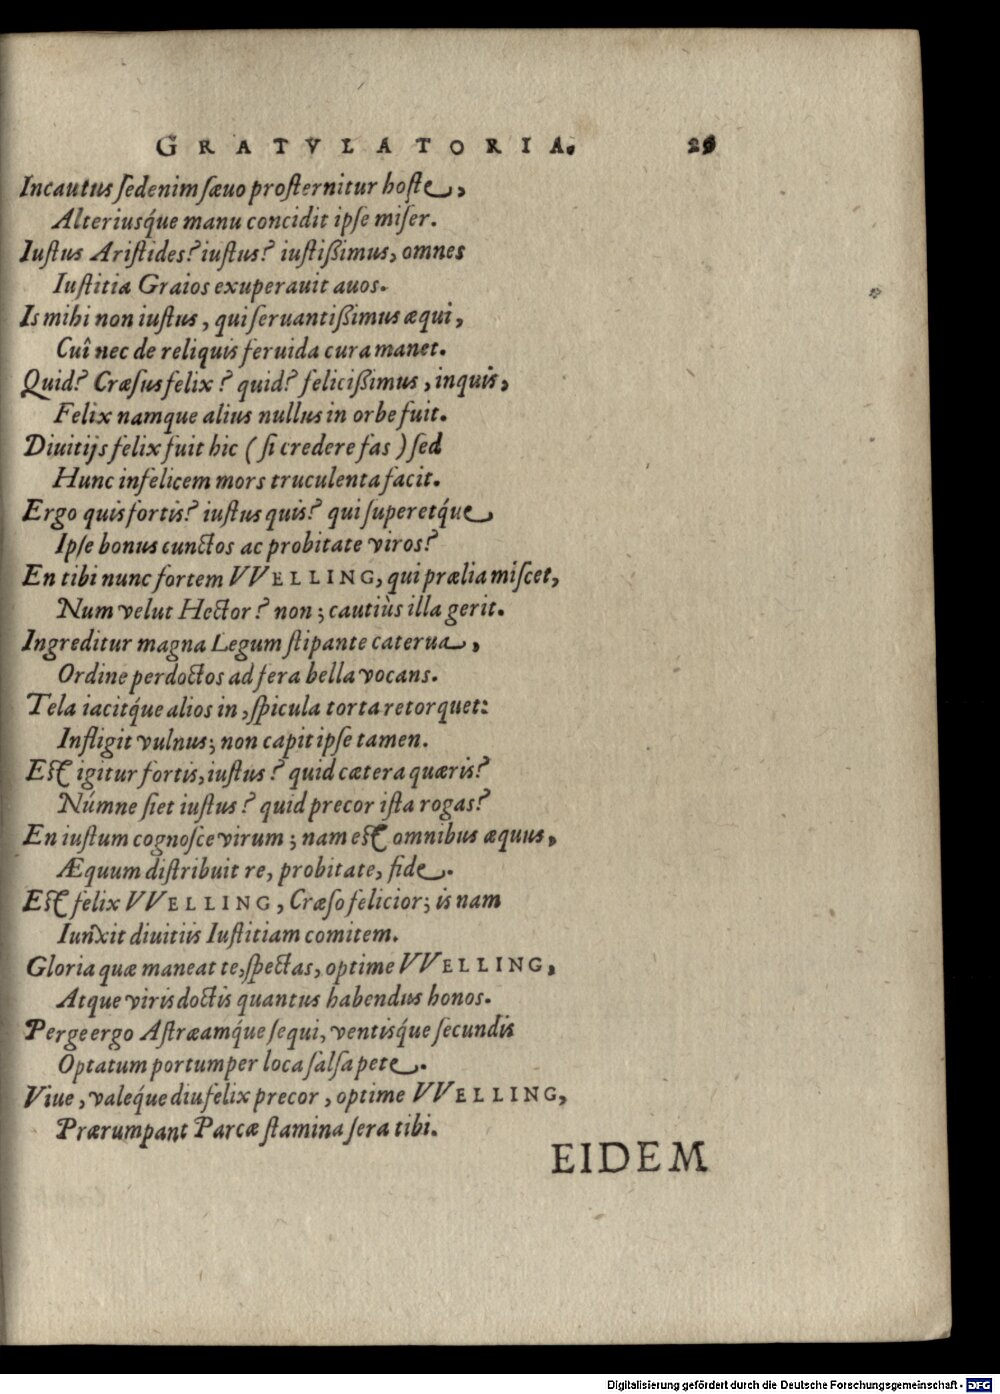 GRATVLATORIA. 29
Incautus sedenim sæuo prosternitur hoste,
Alteriusq́ue manu concidit ipse miser.
Iustus Aristides? iustus? iustißimus, omnes
Iustitia Graios exuperauit auos.
Is mihi non iustus, qui seruantißimus æqui,
Cuî nec de reliquis feruida cura manet.
Quid? Cræsus felix? quid? felicißimus, inquis,
Felix namque alius nullus in orbe fuit.
Diuitijs felix fuit hic (si credere fas) sed
Hunc infelicem mors truculenta facit.
Ergo quis fortis? iustus quis? qui superetq́ue
Ipse bonus cunctos ac probitate viros?
En tibi nunc fortem VVELLING, qui prælia miscet,
Num velut Hector? non; cautiùs illa gerit.
Ingreditur magna Legum stipante caterua,
Ordine perdoctos ad fera bella vocans.
Tela iacitq́ue alios in, spicula torta retorquet:
Infligit vulnus; non capit ipse tamen.
Est igitur fortis, iustus? quid cætera quæris?
Númne siet iustus? quid precor ista rogas?
En iustum cognosce virum; nam est omnibus æquus,
Æquum distribuit re, probitate, fide.
Est felix VVELLING, Cræso felicior; is nam
Iunxit diuitiis Iustitiam comitem.
Gloria quæ maneat te, spectas, optime VVELLING,
Atque viris doctis quantus habendus honos.
Perge ergo Astræamq́ue sequi, ventisq́ue secundis
Optatum portum per loca salsa pete.
Viue, valeq́ue diu felix precor, optime VVELLING,
Prærumpant Parcæ stamina sera tibi.
EIDEM
Digitalisierung gefördert durch die Deutsche Forschungsgemeinschaft - DFG